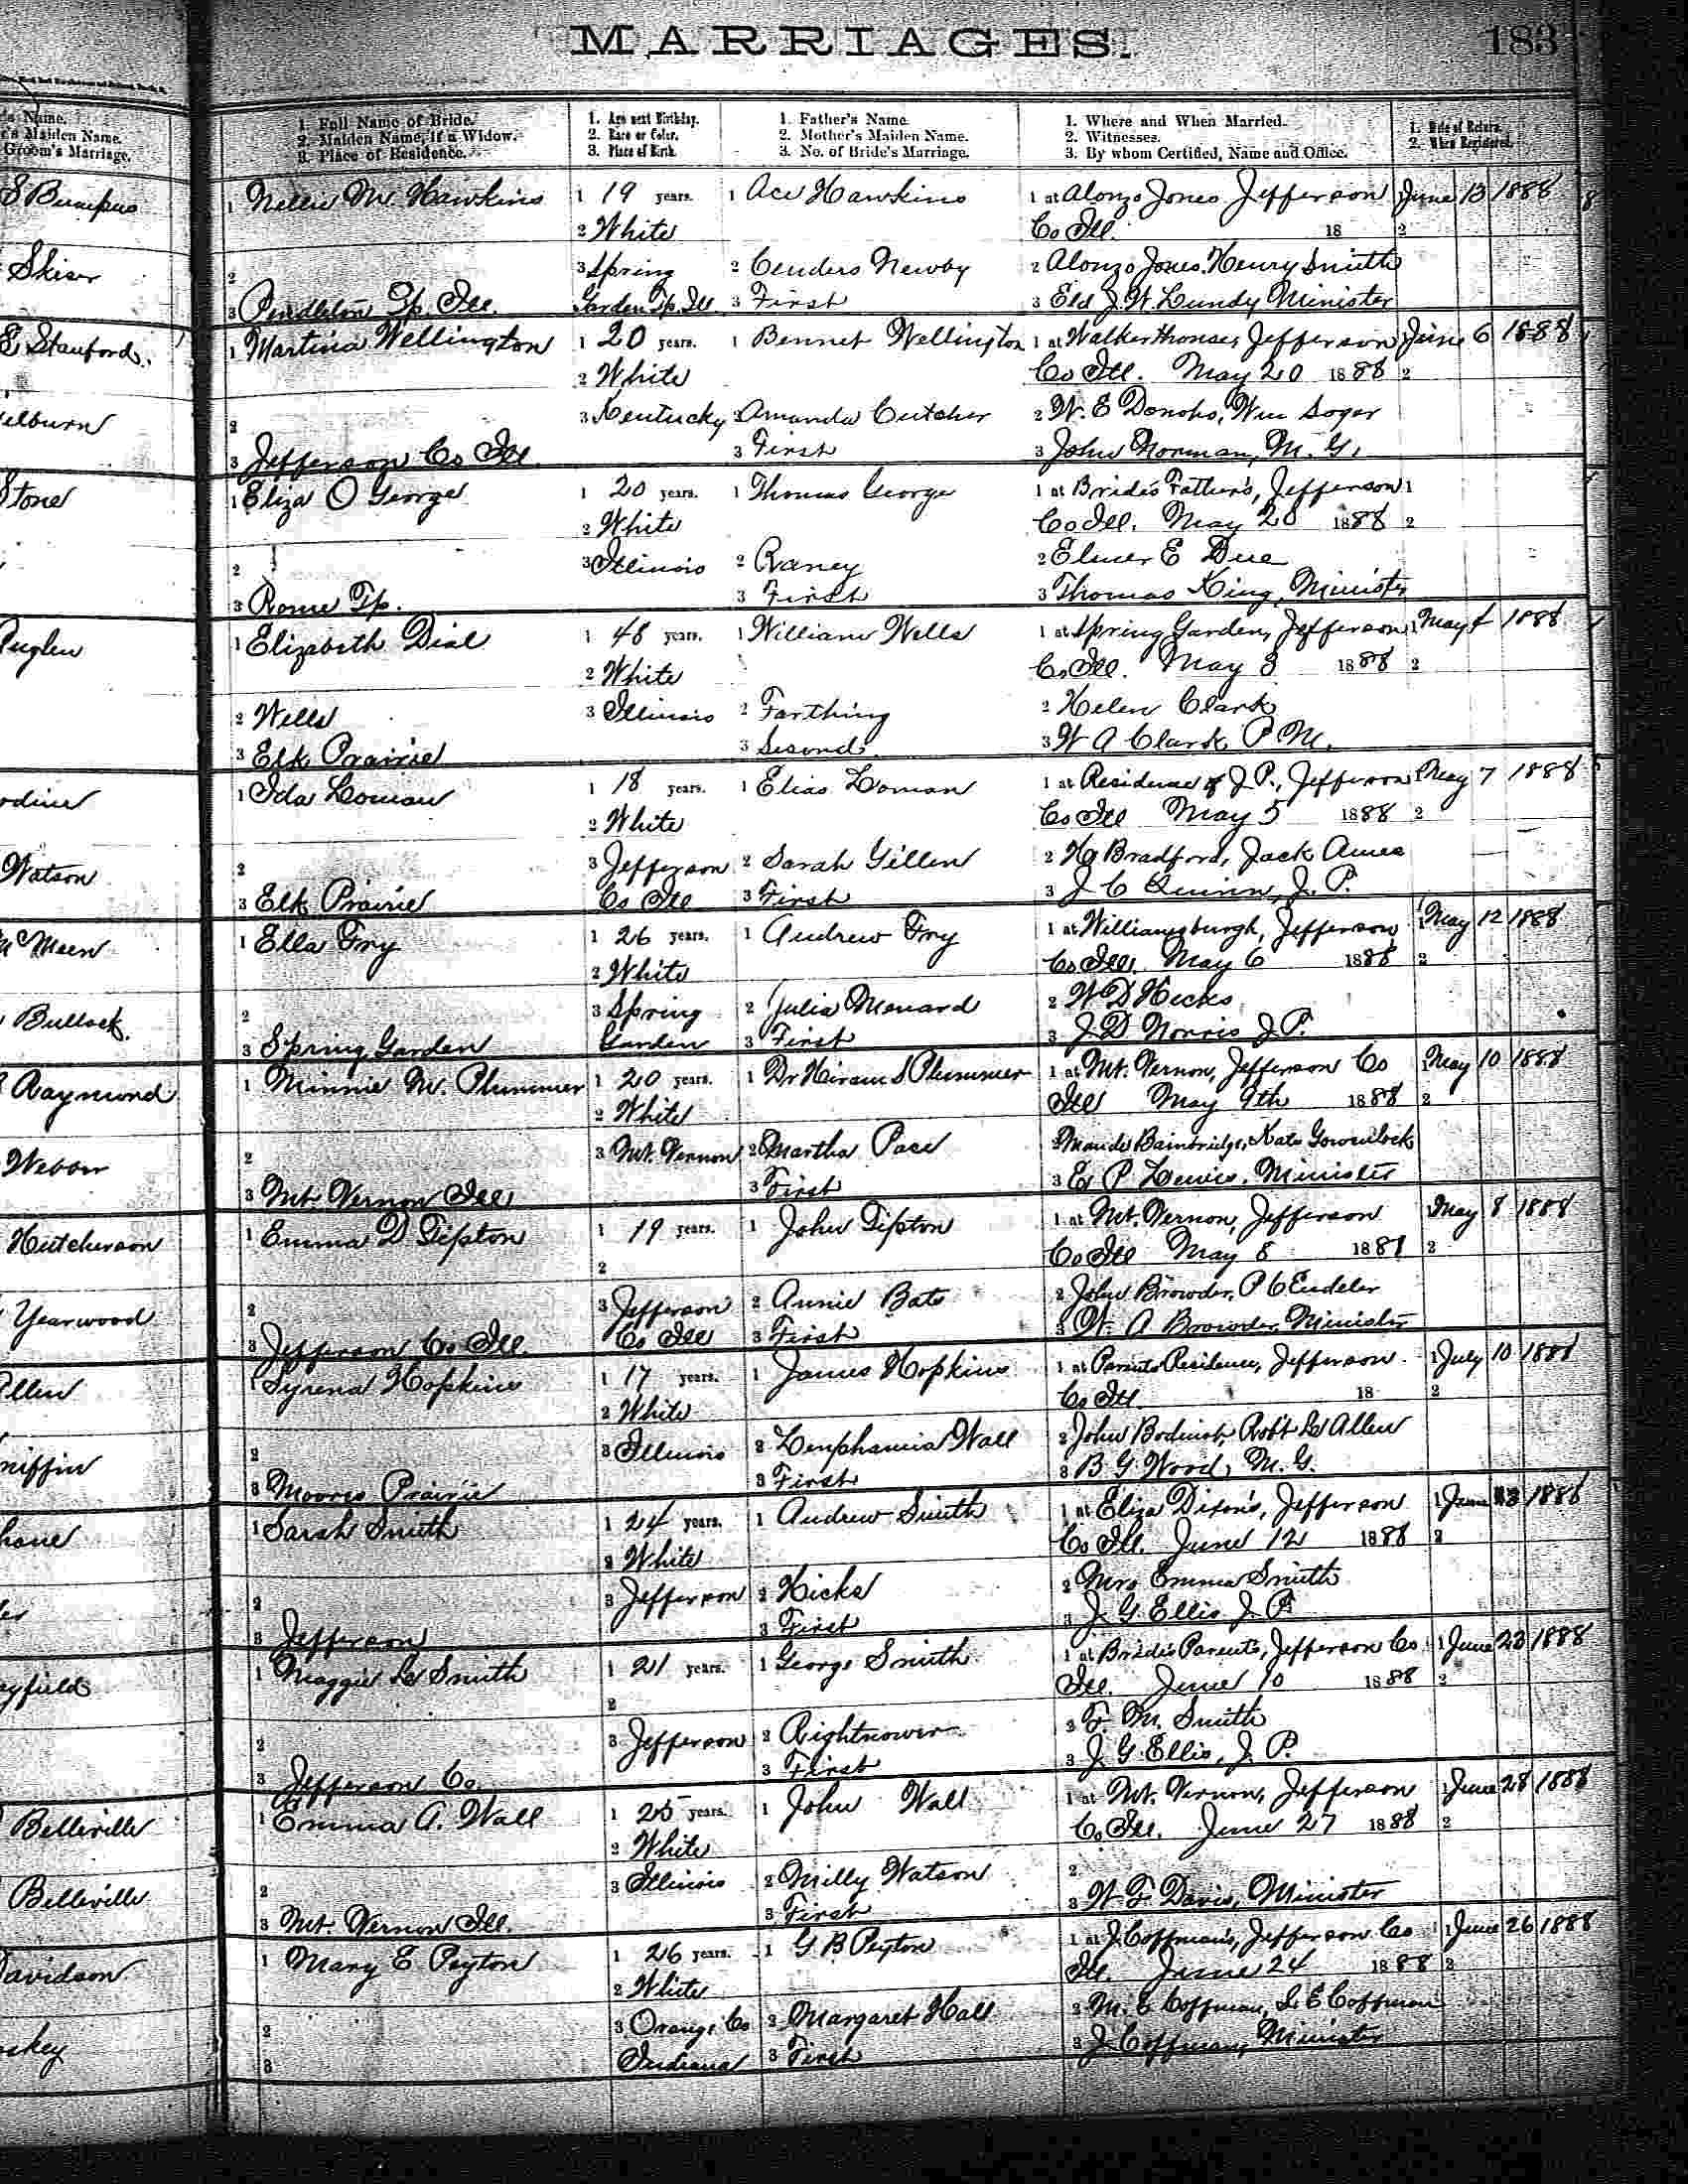 MARRIAGES.
183
's Name.
r's Maiden Name.
Groom's Marriage.
1. Full Name of Bride.
2. Maiden Name, if a Widow.
3. Place of Residence.
1. Age next Birthday.
2. Race or Color.
3. Place of Birth.
1. Father's Name.
2. Mother's Maiden Name.
3. No. of Bride's Marriage.
1. Where and When Married.
2. Witnesses.
3. By whom Certified, Name and Office.
1. Date of Return.
2. When Registered.
S Bumpus
1 Nellie M. Hawkins 1 19 years. 1 Ace Hawkins 1 at Alonzo Jones Jefferson June 13 1888
2 White Co Ill. 18 2
Skiser
2 3 Spring 2 Cendero Newby 2 Alonzo Jones, Henry Smith
3 Pendleton Tp. Ill. Garden Tp. Ill 3 First 3 Eld J. W. Lundy Minister
E Stanford.
1 Martina Wellington 1 20 years. 1 Bennet Wellington 1 at Walkerthouse, Jefferson June 6 1888
2 White Co Ill. May 20 1888 2
elburn
2 3 Kentucky 2 Amanda Cutcher 2 W. E Donoho, Wm Soger
3 Jefferson Co Ill. 3 First 3 John Norman, M. G.
Stone
1 Eliza O George 1 20 years. 1 Thomas George 1 at Bride's Father's, Jefferson 1
2 White Co Ill. May 20 1888 2
2 3 Illinois 2 Raney 2 Elmer E Due
3 Rome Tp. 3 First 3 Thomas King, Minister
1 Elizabeth Dial 1 48 years. 1 William Wells 1 at Spring Garden, Jefferson 1 May 4 1888
2 White Co Ill. May 3 1888 2
2 Wells 3 Illinois 2 Farthing 2 Helen Clark
3 Elk Prairie 3 Second 3 W A Clark P M.
odine
1 Ida Loman 1 18 years. 1 Elias Loman 1 at Residence of J. P., Jefferson 1 May 7 1888
2 White Co Ill May 5 1888 2
Watson
2 3 Jefferson 2 Sarah Gillen 2 Bradford, Jack Ames
3 Elk Prairie Co Ill 3 First 3 J C Quinn, J. P.
McMeen
1 Ella Fry 1 26 years. 1 Andrew Fry 1 at Williamsburgh, Jefferson 1 May 12 1888
2 White Co Ill. May 6 1888 2
Bullock
2 3 Spring 2 Julia Menard 2 W D Hicks
3 Spring Garden Garden 3 First 3 J. D Norris J P.
Raymond
1 Minnie M. Plummer 1 20 years. 1 Dr Hiram S Plummer 1 at Mt. Vernon, Jefferson Co 1 May 10 1888
2 White Ill May 9th 1888 2
Webow
2 3 Mt. Vernon 2 Martha Pace 2 Maude Bainbridge, Kate Gowenlock
3 Mt. Vernon Ill 3 First 3 E. P. Lewis. Minister
Hutcherson
1 Emma D Tipton 1 19 years. 1 John Tipton 1 at Mt. Vernon, Jefferson May 8 1888
2 Co Ill May 8 1881 2
Yearwood
2 3 Jefferson 2 Annie Bate 2 John Browder, P C Endeler
3 Jefferson Co Ill. Co Ill 3 First 3 W. A Browder, Minister
Allen
1 Syrena Hopkins 1 17 years. 1 James Hopkins 1 at Parents Residence, Jefferson. 1 July 10 1888
2 White Co Ill. 18 2
niffin
2 3 Illinois 2 Wall 2 John Bodine, Robt L Allen
3 Moores Prairie 3 First 3 B. G. Wood, M. G.
hane
1 Sarah Smith 1 24 years. 1 Andrew Smith 1 at Eliza Dixon's, Jefferson 1 June 1888
2 White Co Ill. June 12 1888 2
2 3 Jefferson 2 Hicks 2 Mrs Emma Smith
3 Jefferson 3 First 3 J. G. Ellis J. P.
ayfield
1 Maggie L Smith 1 21 years. 1 George Smith 1 at Bride's Parents, Jefferson Co 1 June 23 1888
2 Ill. June 10 1888 2
2 3 Jefferson 2 Rightnower 2 F. M. Smith
3 Jefferson Co. 3 First 3 J. G. Ellis, J. P.
Belleville
1 Emma A. Wall 1 25 years. 1 John Wall 1 at Mt. Vernon, Jefferson 1 June 28 1888
2 White Co Ill. June 27 1888 2
Belleville
2 3 Illinois 2 Milly Watson 2
3 Mt. Vernon Ill. 3 First 3 W. F. Davis, Minister
Davidson
1 Mary E Peyton 1 26 years. 1 G B Peyton 1 at J. Coffman's, Jefferson Co 1 June 26 1888
2 White Ill. June 24 1888 2
skey
2 3 Orange Co 2 Margaret Hall 2 M. E Coffman, S. E Coffman
3 Indiana 3 First 3 J. Coffman, Minister